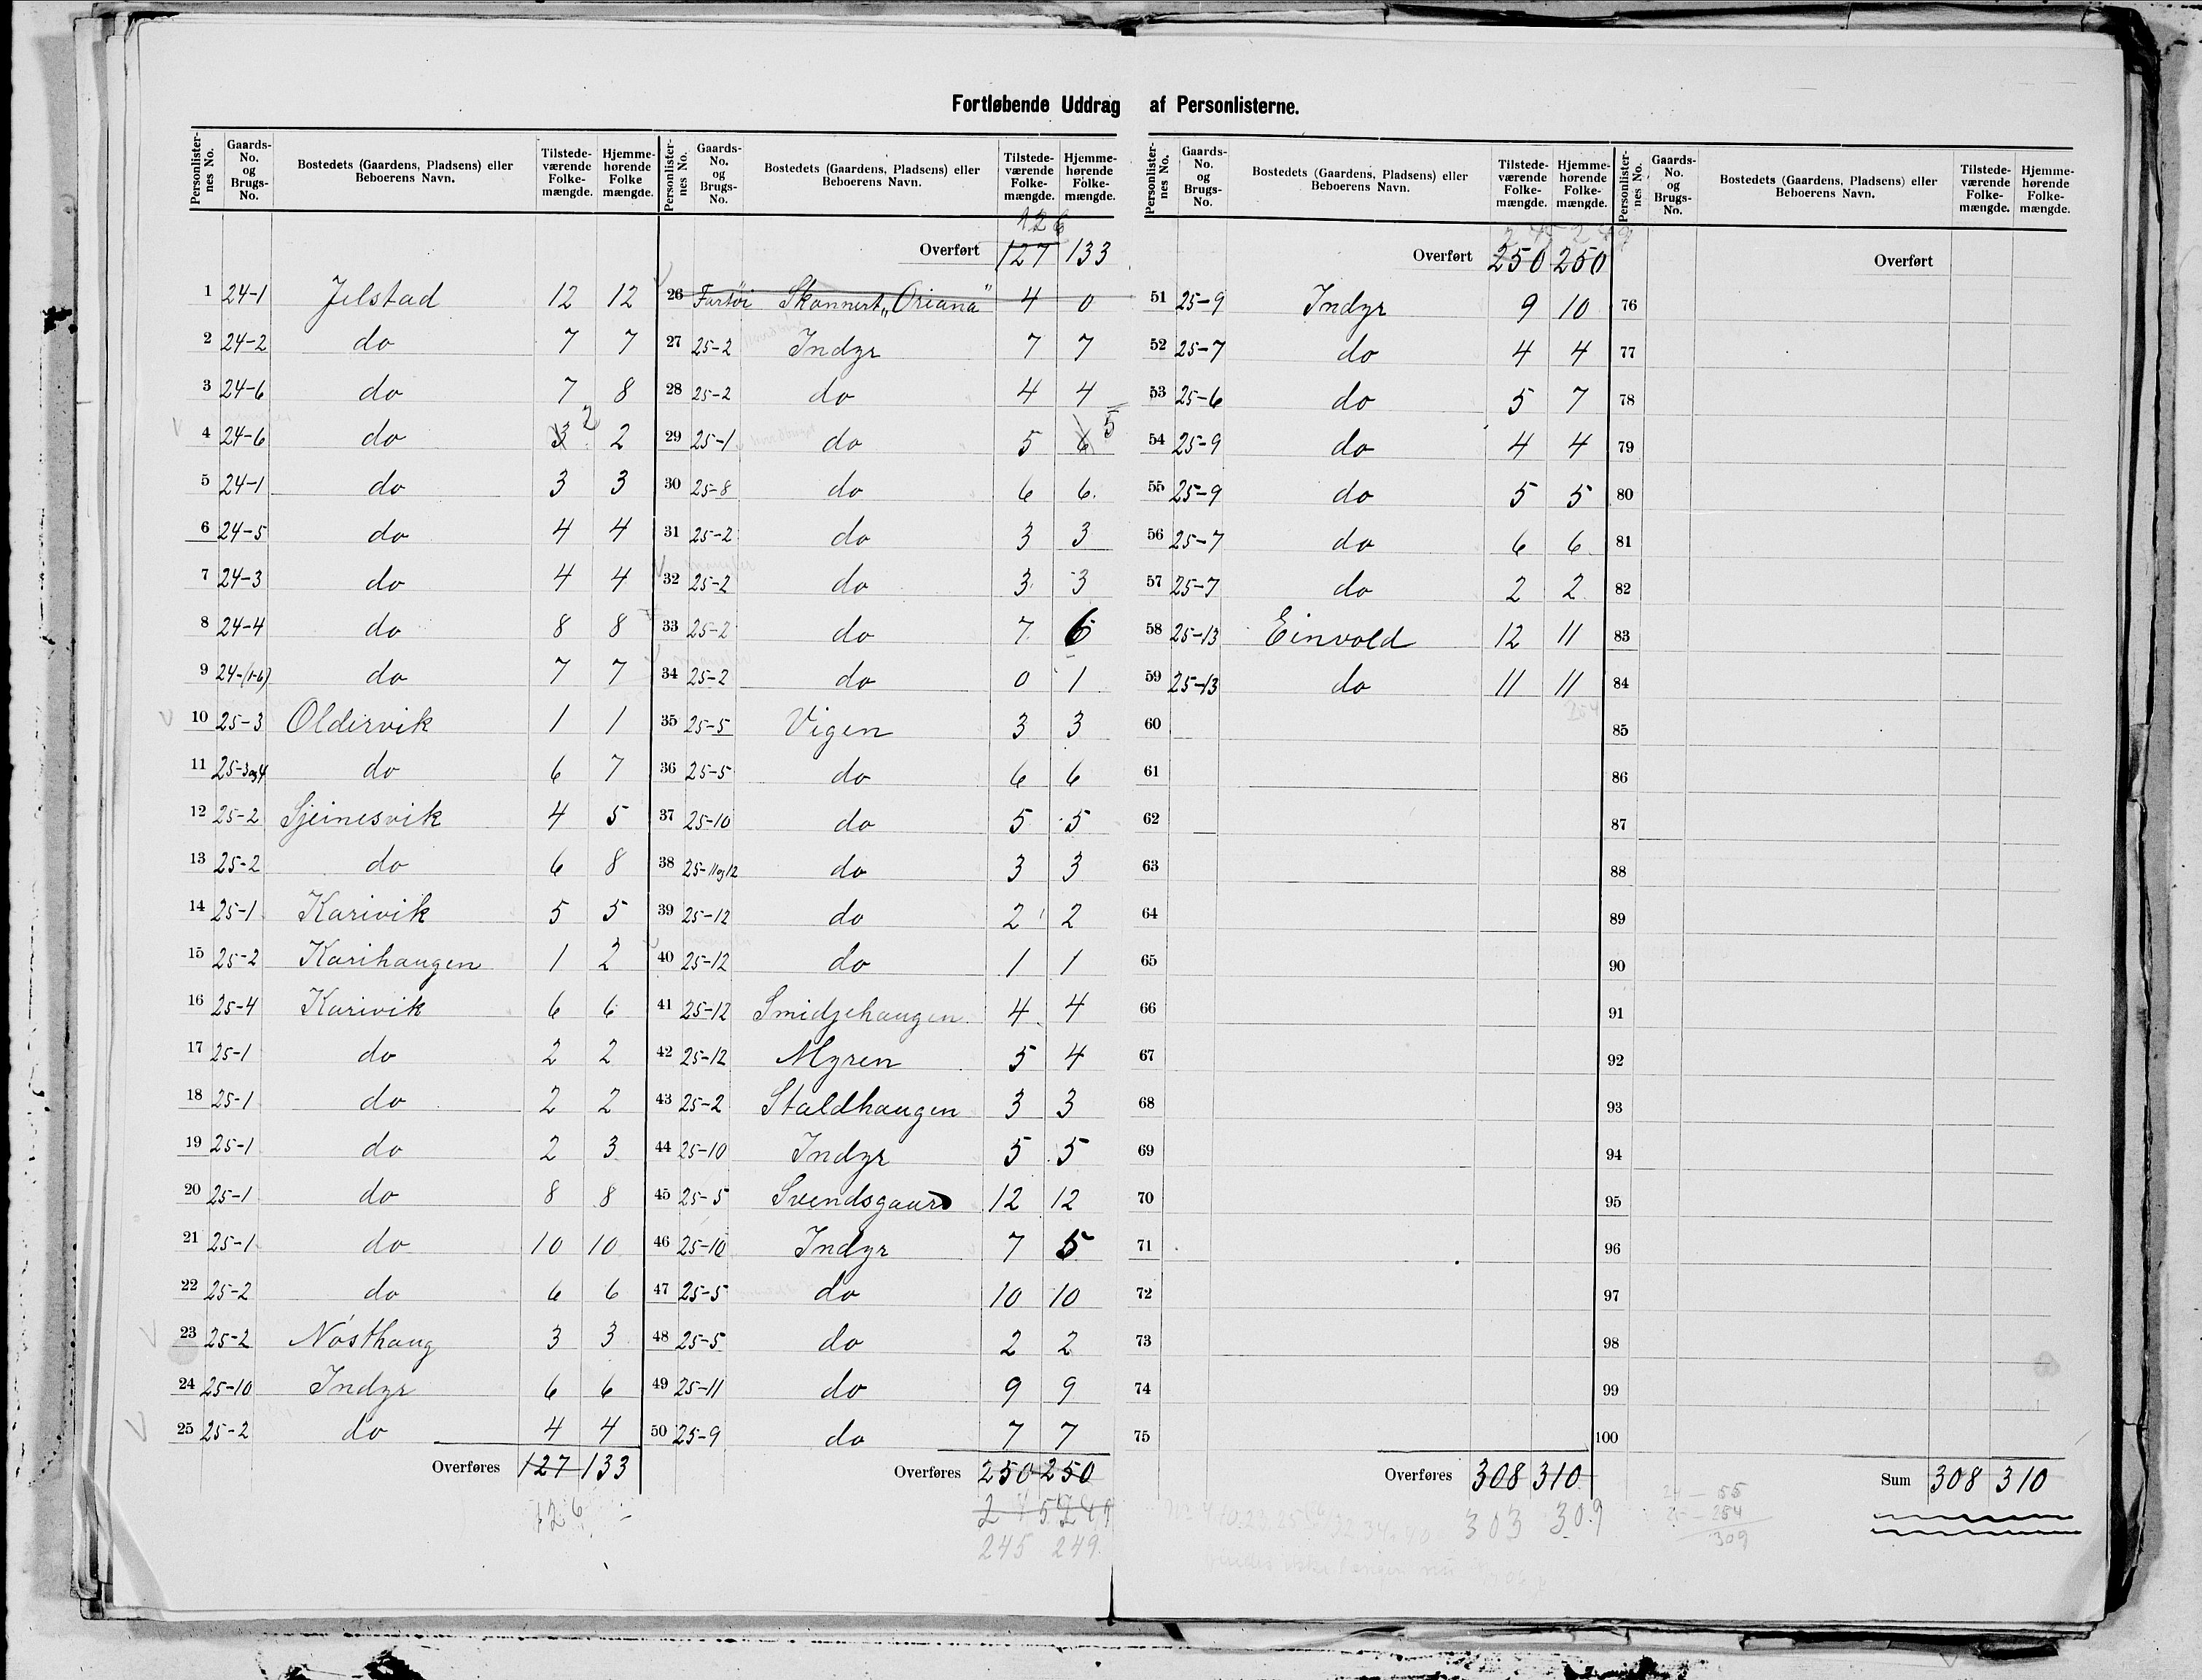 Fortløbende Uddrag af Personlisterne.
Personlisternes No. Gaards-No. og Brugs-No. Bostedets (Gaardens, Pladsens) eller Beboerens Navn. Tilstedeværende Folkemængde. Hjemmehørende Folkemængde.
1 24-1 Jelstad 12 12
2 24-2 do 7 7
3 24-6 do 7 8
4 24-6 do 3 2 2
5 24-1 do 3 3
6 24-5 do 4 4
7 24-3 do 4 4
8 24-4 do 8 8
9 24-(1-6) do 7 7
10 25-3 Oldervik 1 1
11 25-3og4 do 6 7
12 25-2 Sjeinesvik 4 5
13 25-2 do 6 8
14 25-1 Karivik 5 5
15 25-2 Karihaugen 1 2
16 25-4 Karivik 6 6
17 25-1 do 2 2
18 25-1 do 2 2
19 25-1 do 2 3
20 25-1 do 8 8
21 25-1 do 10 10
22 25-2 do 6 6
23 25-2 Nøsthaug 3 3
24 25-10 Indyr 6 6
25 25-2 do 4 4
Overføres 127 133
126
Personlisternes No. Gaards-No. og Brugs-No. Bostedets (Gaardens, Pladsens) eller Beboerens Navn. Tilstedeværende Folkemængde. Hjemmehørende Folkemængde.
126
Overført 127 133
26 Fartöi Skonnert „Oriana" 4 0
27 25-2 Indyr 7 7
28 25-2 do 4 4
29 25-1 do 5 6 5
30 25-8 do 6 6
31 25-2 do 3 3
32 25-2 do 3 3
33 25-2 do 7 6
34 25-2 do 0 1
35 25-5 Vigen 3 3
36 25-5 do 6 6
37 25-10 do 5 5
38 25-11og12 do 3 3
39 25-12 do 2 2
40 25-12 do 1 1
41 25-12 Smidjehaugen 4 4
42 25-12 Myren 5 4
43 25-2 Staldhaugen 3 3
44 25-10 Indyr 5 5
45 25-5 Svendsgaard 12 12
46 25-10 Indyr 7 5
47 25-5 do 10 10
48 25-5 do 2 2
49 25-11 do 9 9
50 25-9 do 7 7
Overføres 250 250
245 249
Personlisternes No. Gaards-No. og Brugs-No. Bostedets (Gaardens, Pladsens) eller Beboerens Navn. Tilstedeværende Folkemængde. Hjemmehørende Folkemængde.
245 249
Overført 250 250
51 25-9 Indyr 9 10
52 25-7 do 4 4
53 25-6 do 5 7
54 25-9 do 4 4
55 25-9 do 5 5
56 25-7 do 6 6
57 25-7 do 2 2
58 25-13 Einvold 12 11
59 25-13 do 11 11
254
60
61
62
63
64
65
66
67
68
69
70
71
72
73
74
75
Overføres 308 310
303 309
Personlisternes No. Gaards-No. og Brugs-No. Bostedets (Gaardens, Pladsens) eller Beboerens Navn. Tilstedeværende Folkemængde. Hjemmehørende Folkemængde.
Overført
76
77
78
79
80
81
82
83
84
85
86
87
88
89
90
91
92
93
94
95
96
97
98
99
100
Sum 308 310
24 - 55
25 - 254
309